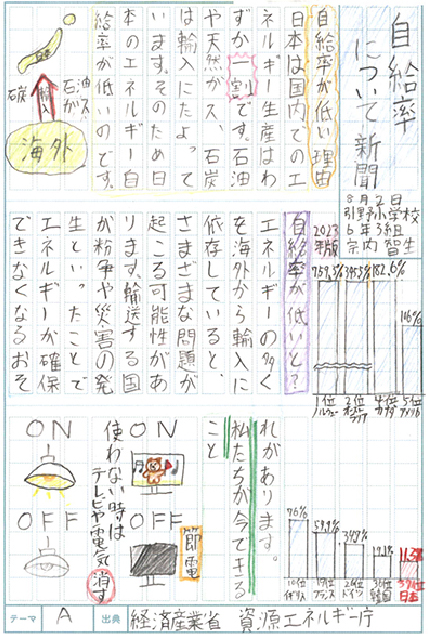 自給率
について新聞
8月2日
引野小学校
6年3組
宗内 智生
自給率が低い理由
日本は国内でのエ
ネルギー生産はわ
ずか一割です。石油
や天然ガス、石炭
は輸入にたよって
います。そのため日
本のエネルギー自
給率が低いのです。
石油
ガス
石炭
輸入
海外
自給率が低いと?
エネルギーの多く
を海外から輸入に
依存していると、
さまざまな問題が
起こる可能性があ
ります。輸送する国
が紛争や災害の発
生といったことで
エネルギーが確保
できなくなるおそ
れがあります。
2023
年版
759.3%
345.5%
182.6%
116%
1位
ノルウェー
2位
オーストラリア
4位
カナダ
5位
アメリカ
76%
10位
イギリス
17位
フランス
34.8%
ドイツ
韓国
日本
私たちが今できる
こと
節電
ON
OFF
使わない時は
テレビや電気消す
ON
OFF
テーマ A 出典 経済産業省 資源エネルギー庁